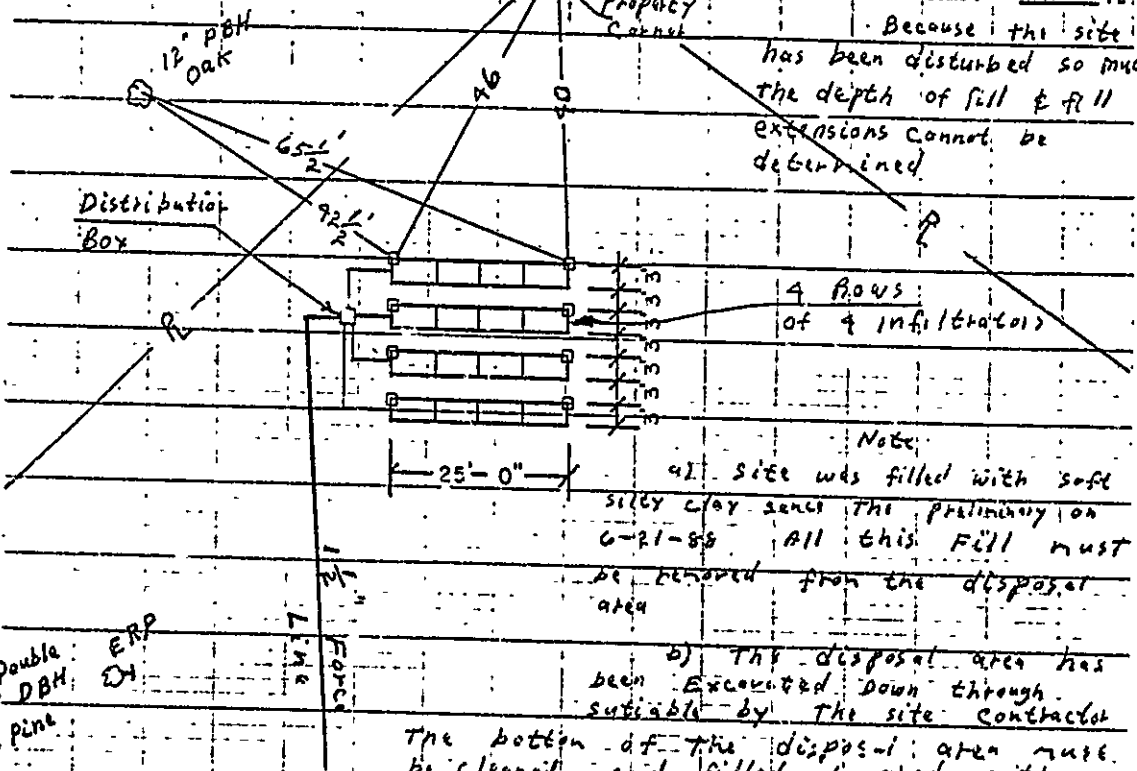 Property
Corner
Because the site
has been disturbed so muc
the depth of fill & fill
extensions cannot be
determined
12" DBH
Oak
46
40
65 1/2'
42 1/2'
Distribution
Box
PL
PL
3'
3'
3'
3'
3'
3'
3'
4 Rows
of 4 infiltrators
25'-0"
Note
a) Site was filled with soft
silty clay sence The preliminary on
6-21-88 All this Fill must
be removed from the disposal
area
1 1/2" Force
Line
Double
DBH
pine
ERP
b) The disposal area has
been Excavated Down through
sutiable by The site contractor
The bottom of The disposal area must